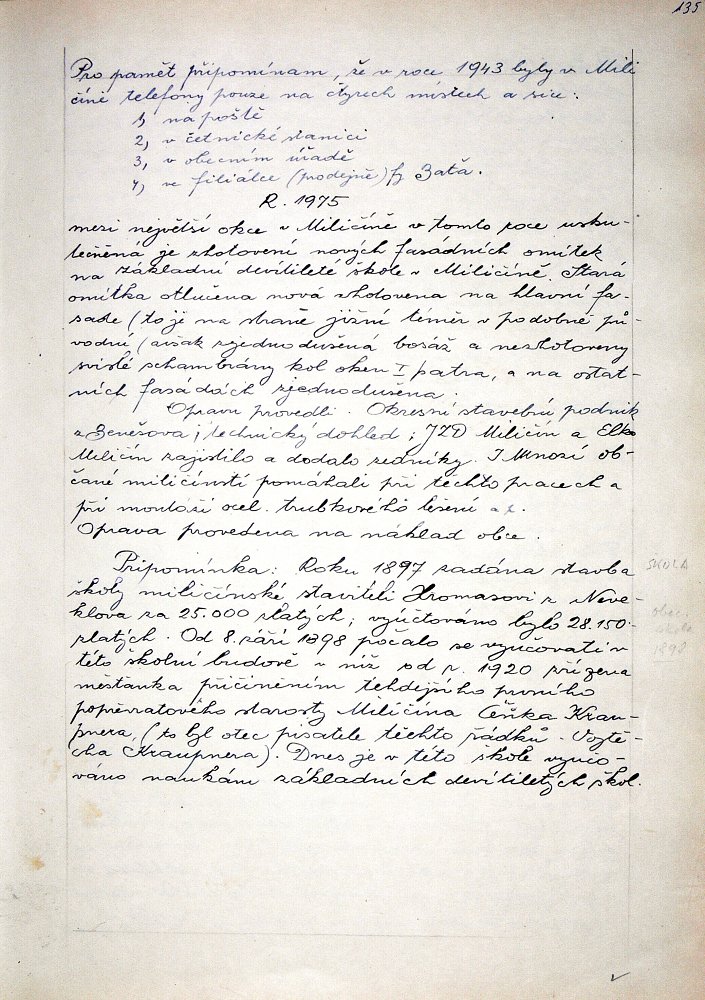 135
Pro pamět připomínam, že v roce 1943 byly v Mili
číně telefony pouze na čtyrech místech a sice:
1, na poště
2, v četnické stanici
3, v obecním úřadě
4, ve filiálce (prodejně) fy Baťa.
R. 1975
mezi největší akce v Miličíně v tomto roce usku-
tečněná je zhotovení nových fasádních omítek
na základní devítileté škole v Miličíně. Stará
omítka otlučena nová zhotovena na hlavní fa-
sade (to je na straně jižní téměř v podobně pů-
vodní (avšak zjednodušená bosáž a nezhotoveny
svislé schambrány kol oken I patra, a na ostat-
ních fasádách zjednodušena.
Opravu provedli. Okresní stavební podnik
z Benešova; technický dohled; JZD Miličín a Elko
Miličín zajistilo a dodalo zedníky. I Mnozí ob-
čané miličínští pomáhali při těchto pracech a
při montáži ocel. trubkového lešení
Oprava provedena na náklad obce.
Připomínka: Roku 1897 zadána stavba
školy miličínské staviteli Hromasovi z Neve-
klova za 25.000 zlatých; vyúčtováno bylo 28.150
zlatých. Od 8. září 1898 počalo se vyučovati v
této školní budově v níž od r. 1920 zřízena
měšťanka přičiněním tehdejšího prvního
popřevratového starosty Miličína Čeňka Krau-
pnera, (to byl otec pisatele těchto řádků. Vojtě-
cha Kraupnera). Dnes je v této škole vyučo-
váno naukám základních devítiletých škol.
SKOLA
1898